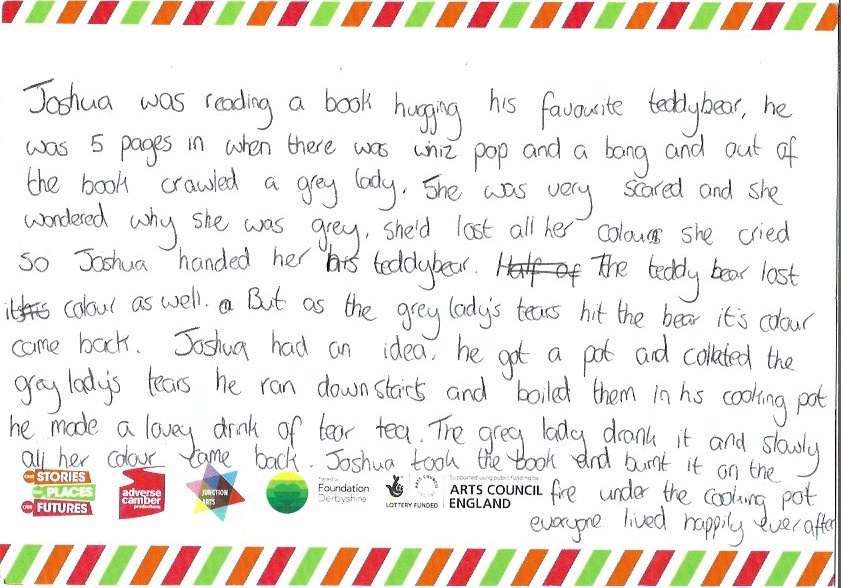 Joshua was reading a book hugging his favourite teddybear, he
was 5 pages in when there was whiz pop and a bang and out of
the book crawled a grey lady. She was very scared and she
wondered why she was grey, she'd lost all her colours she cried
So Joshua handed her his teddybear. Half of The teddy bear lost
its colour as well. But as the grey lady's tears hit the bear it's colour
came back. Joshua had an idea, he got a pot and collated the
grey lady's tears he ran downstairs and boiled them in his cooking pot
he made a lovey drink of tear tea. The grey lady drank it and slowly
all her colour came back. Joshua took the book and burnt it on the
fire under the cooking pot
everyone lived happily ever after
OUR STORIES
OUR PLACES
OUR FUTURES
adverse
camber
productions
JUNCTION
ARTS
Foundation
Derbyshire
LOTTERY FUNDED
Supported using public funding by
ARTS COUNCIL
ENGLAND